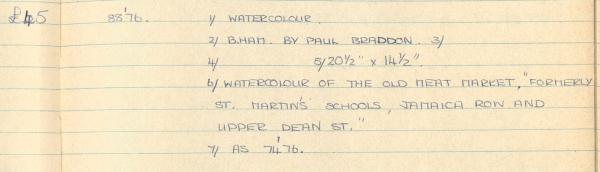 £45 88'76. 1/ WATERCOLOUR.
2/ B.HAM. BY PAUL BRADDON. 3/
4/ 5/ 20½" x 14½".
6/ WATERCOLOUR OF THE OLD MEAT MARKET, "FORMERLY
ST. MARTIN'S SCHOOLS, JAMAICA ROW AND
UPPER DEAN ST."
7/ AS 74'76.